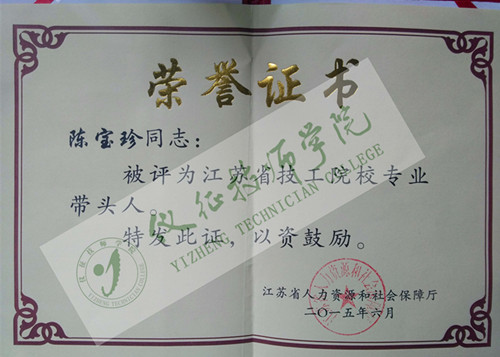 荣誉证书
陈宝珍同志：
被评为江苏省技工院校专业
带头人。
特发此证，以资鼓励。
江苏省人力资源和社会保障厅
二〇一五年六月
仪征技师学院
YIZHENG TECHNICIAN COLLEGE